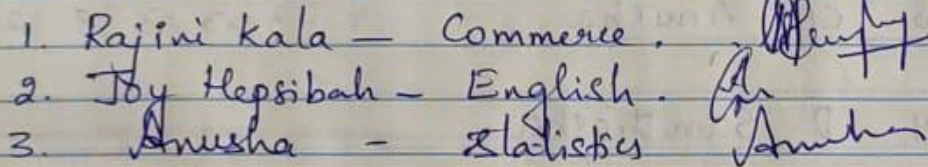 1. Rajini Kala - Commerce.
2. Joy Hepsibah - English.
3. Anusha - Statistics Anusha